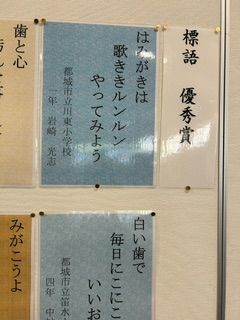 標語 優秀賞
はみがきは
歌ききルンルン
やってみよう
都城市立川東小学校
一年 岩崎 光志
歯と心
白い歯で
毎日にこにこ
いいお
都城市立笛水
四年 中村
みがこうよ